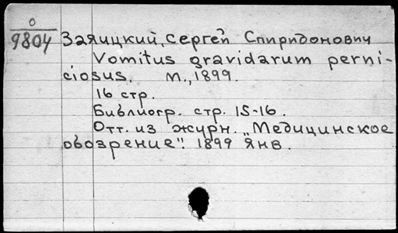 0
9804
Заяицкий, Сергей Спиридонович
Vomitus gravidarum perni-
ciosus. М., 1899.
16 стр.
Библиогр. стр. 15-16.
Отт. из журн. „Медицинское
обозрение". 1899 Янв.